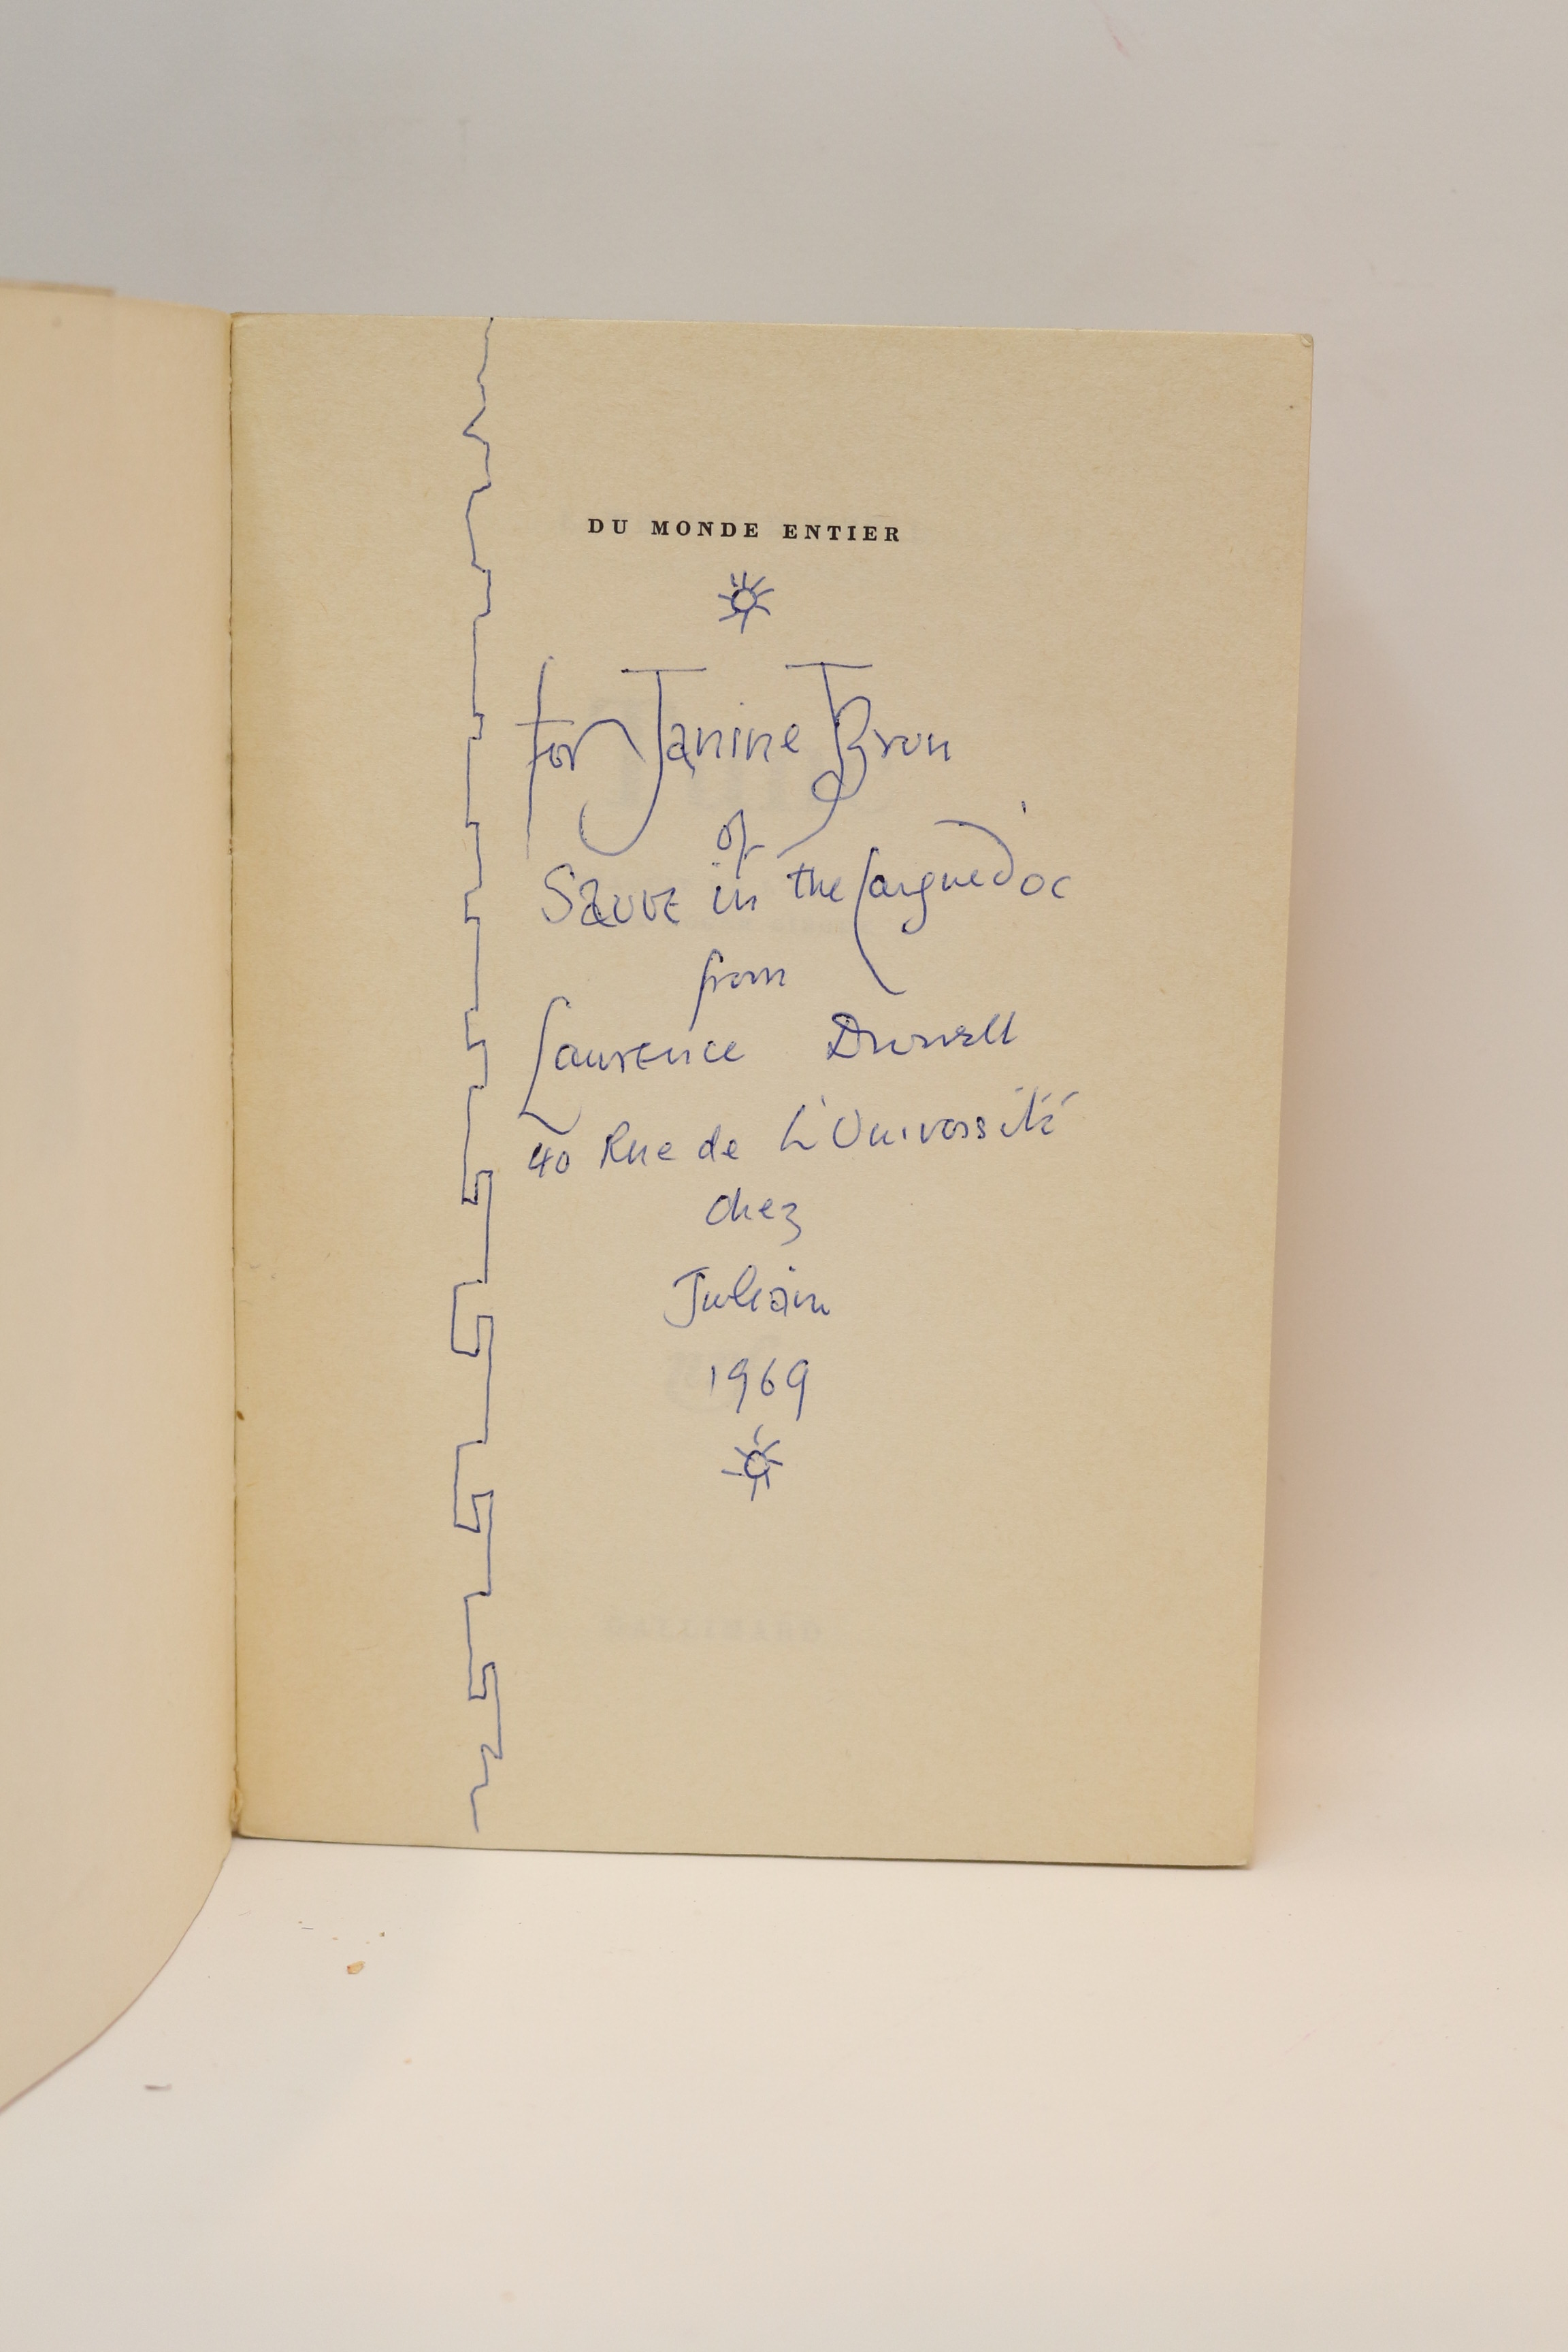 DU MONDE ENTIER
for Janine Brun
of
Sauve in the Languedoc
from
Lawrence Durrell
40 Rue de L'Université
chez
Julian
1969
GALLIMARD